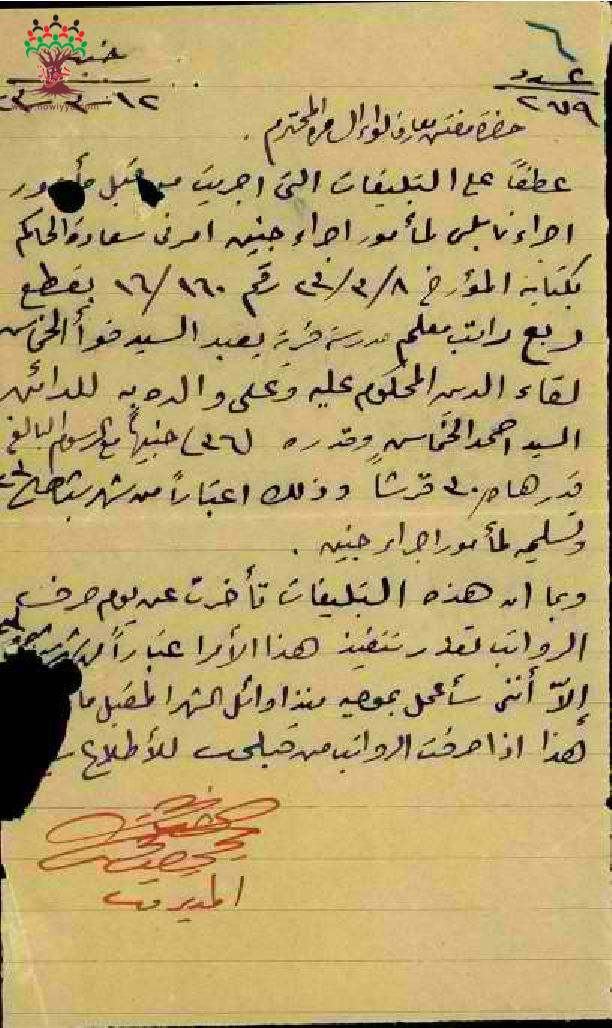 جنين
عدد
٢٧٩
١٢
www.howiyya.com
حضرة مفتش معارف لواء السامرة المحترم .
عطفاً على التبليغات التي اجريت من قبل مأمور
اجراء نابلس لمأمور اجراء جنين امرني سعادة الحاكم
بكتابه المؤرخ ٢٣/٣/٨ رقم ١٦/١٦٠ بقطع
ربع راتب معلم مدرسة قرية يعبد السيد فؤاد الخماش
لقاء الدين المحكوم عليه وعلى والده به للدائن
السيد احمد الخماش وقدره (٣٦) جنيهاً مع الرسوم البالغ
قدرها ٣٠ قرشاً وذلك اعتباراً من شهر شباط
وتسليمه لمأمور اجراء جنين .
وبما ان هذه التبليغات تأخرت عن يوم صرف
الرواتب تعذر تنفيذ هذا الأمر اعتباراً من شهر
إلاّ أنني سأعمل بموجبه منذ اوائل الشهر المقبل
هذا اذا صرفت الرواتب من قبلي للأطلاع
المدير